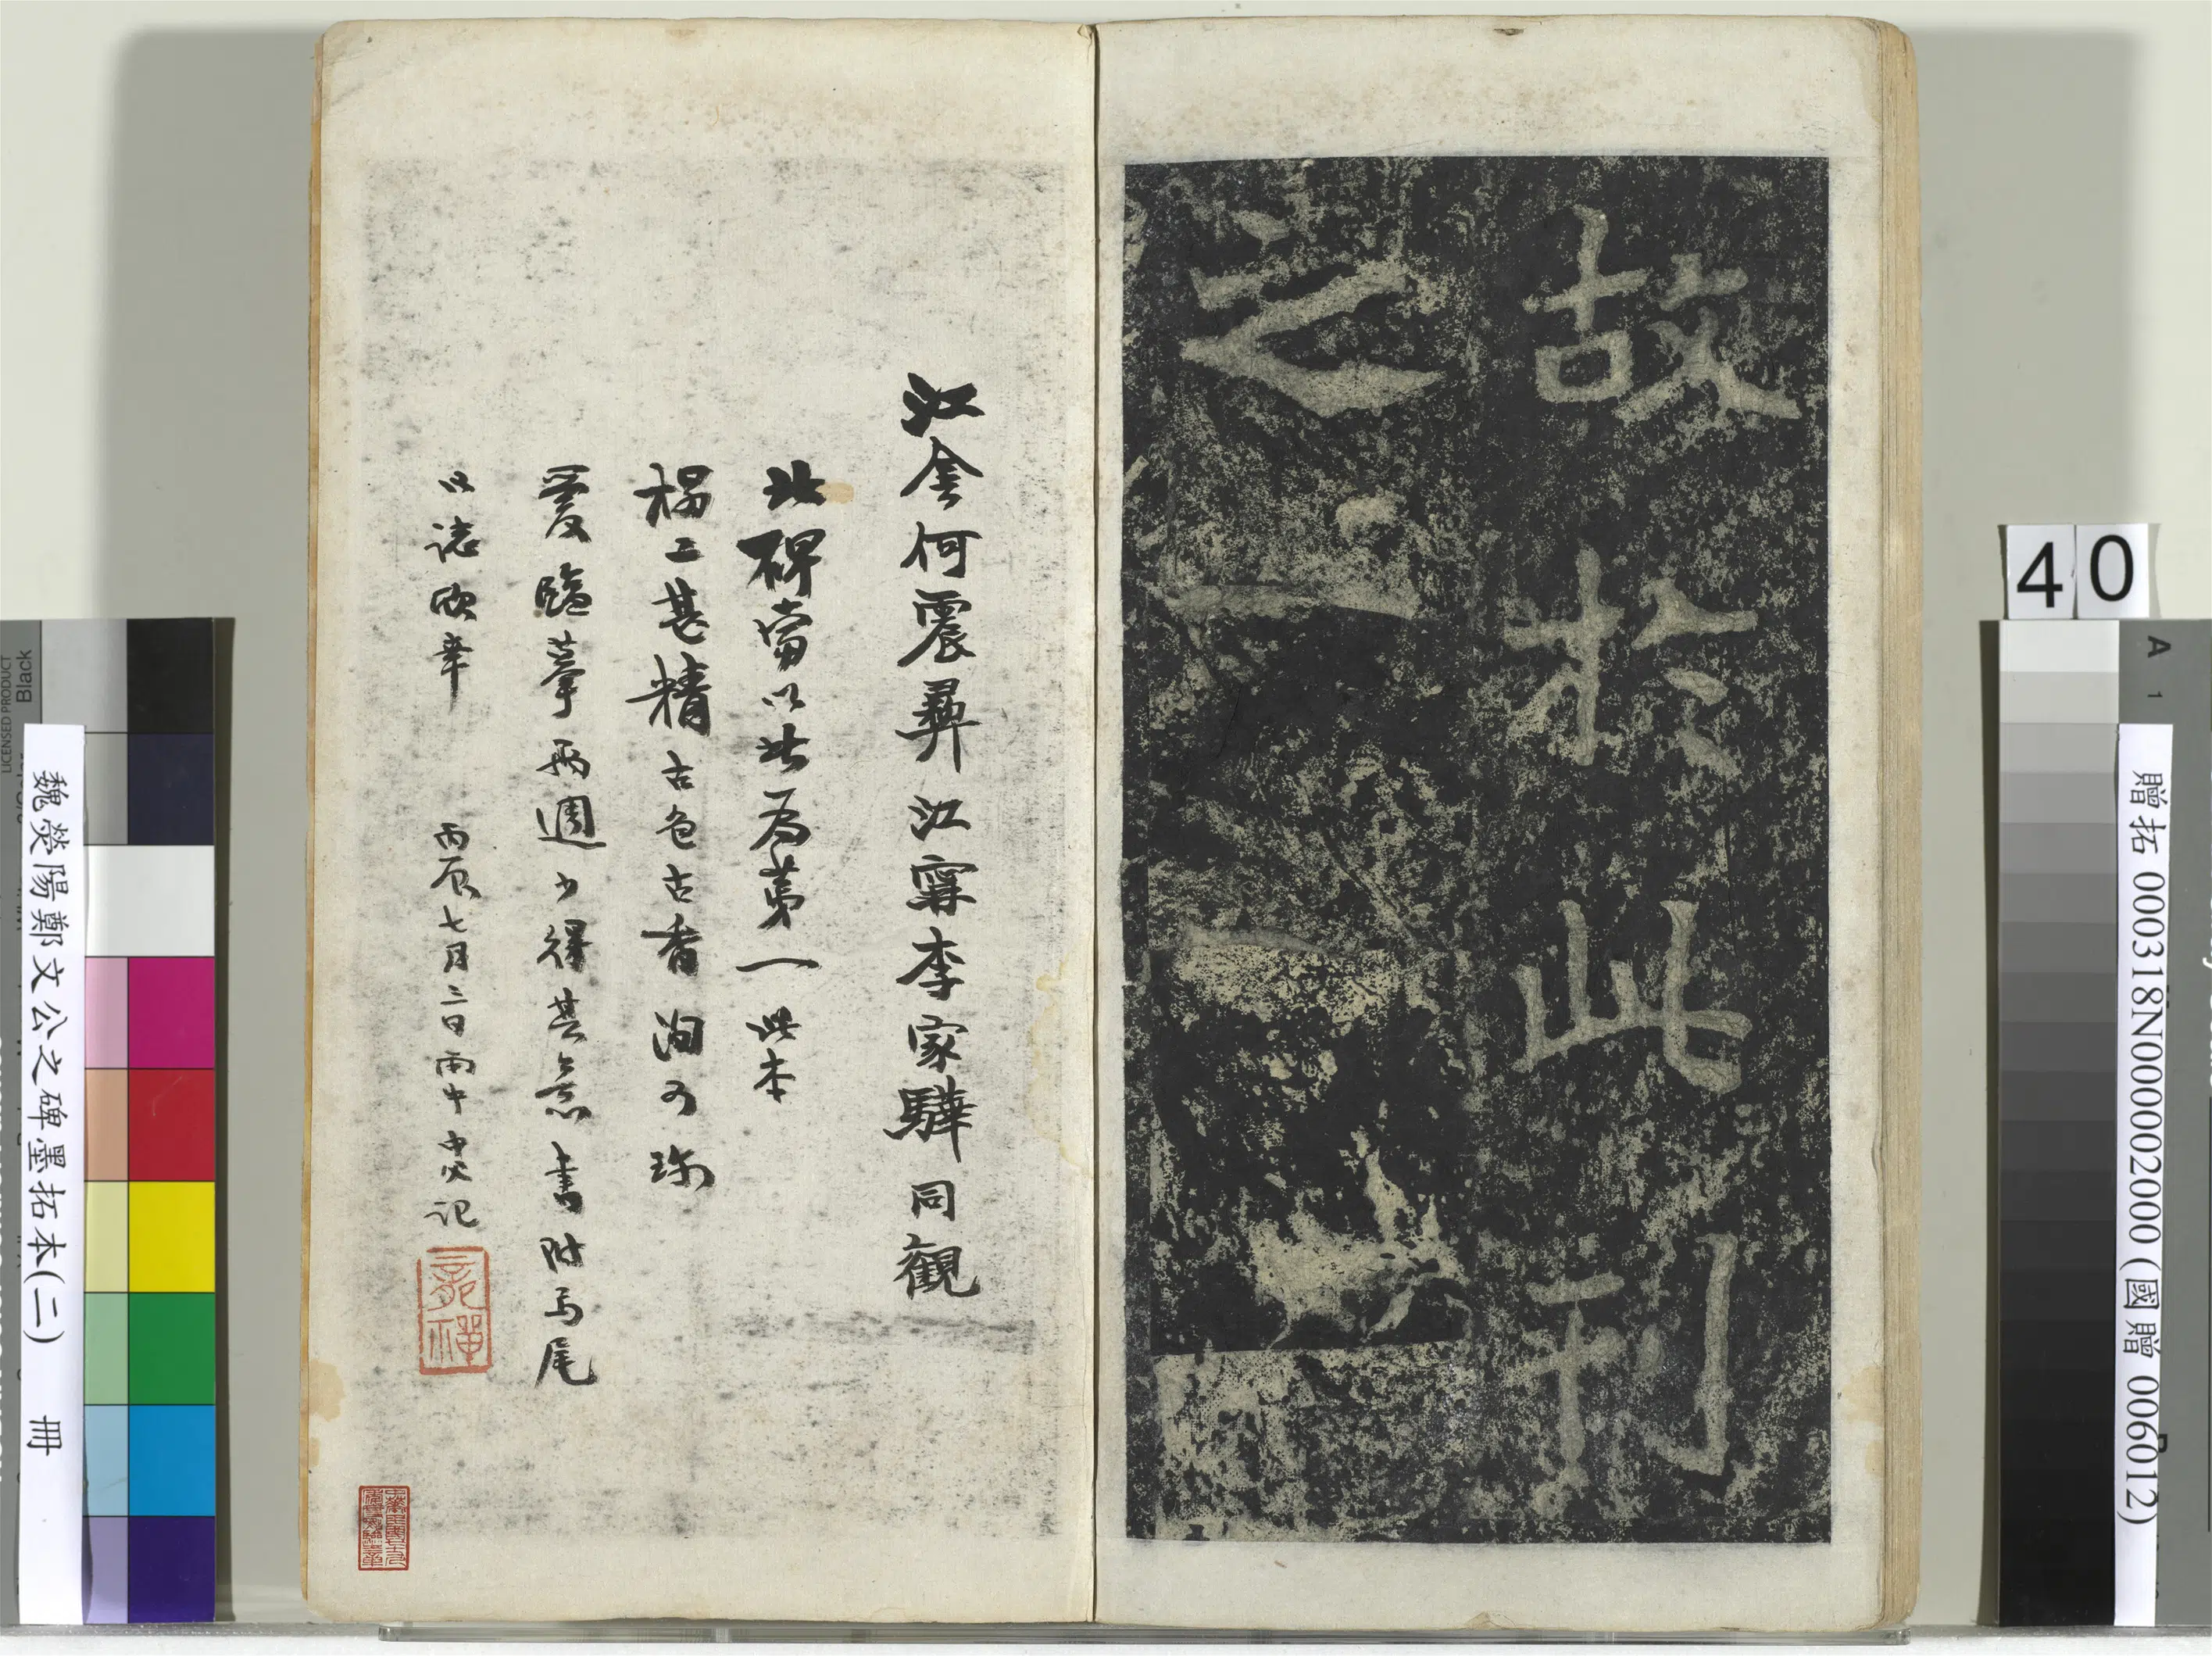 故於此刊
之
江侌何震彝江寧李家驊同觀
北碑當以此為第一此本
榻工甚精古色古香洵可珎
愛臨摹兩週少得其意書附尾
以誌欣幸 丙辰七月二日雨中記
40
魏滎陽鄭文公之碑墨拓本(二) 冊
贈拓 000318N000002000 (國贈 006012)
LICENSED PRODUCT
Black
A
1